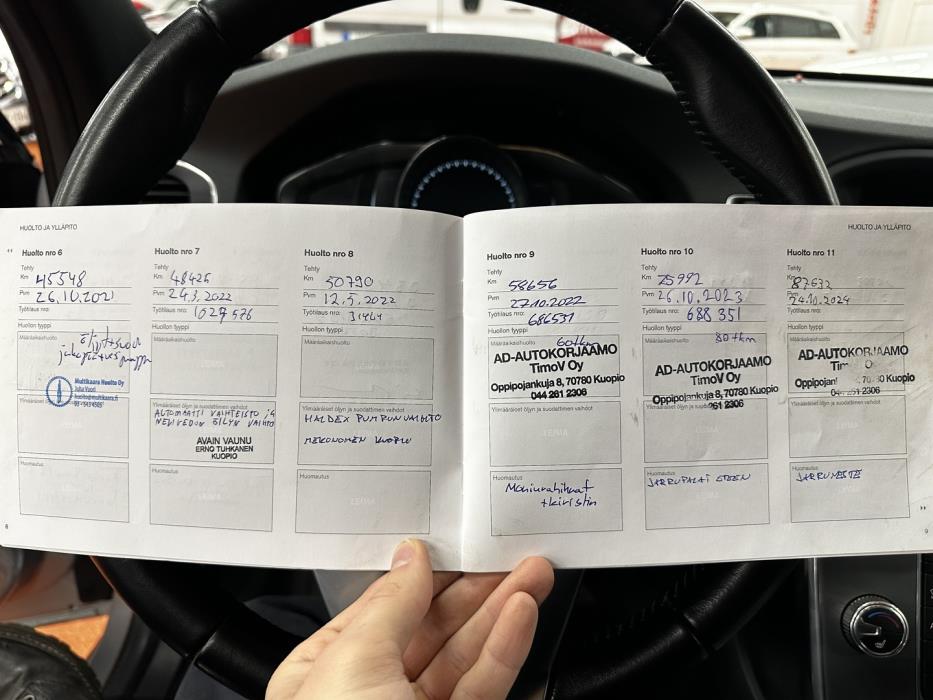 HUOLTO JA YLLÄPITO
Huolto nro 6
Tehty
Km 45548
Pvm 26.10.2021
Työtilaus nro:
Huollon tyyppi
Määräaikaishuolto
Multikaara Huolto Oy
Juha Vuori
Ylimääräiset öljyn ja suodattimen vaihdot
Huomautus
8
Huolto nro 7
Tehty
Km 48425
Pvm 24.3.2022
Työtilaus nro: 1027576
Huollon tyyppi
Määräaikaishuolto
Ylimääräiset öljyn ja suodattimen vaihdot
AUTOMAATTI VAIHTEISTO JA
NELIVEDON ÖLJYN VAIHTO
AVAIN VAUNU
ERNO TUHKANEN
KUOPIO
Huomautus
LEIMA
Huolto nro 8
Tehty
Km 50790
Pvm 12.5.2022
Työtilaus nro: 31464
Huollon tyyppi
Määräaikaishuolto
Ylimääräiset öljyn ja suodattimen vaihdot
HALDEX PUMPUN VAIHTO
MEKONOMEN KUOPIO
Huomautus
LEIMA
HUOLTO JA YLLÄPITO
Huolto nro 9
Tehty
Km 58656
Pvm 27.10.2022
Työtilaus nro: 686531
Huollon tyyppi
Määräaikaishuolto 60tkm
AD-AUTOKORJAAMO
TimoV Oy
Oppipojankuja 8, 70780 Kuopio
044 261 2306
Ylimääräiset öljyn ja suodattimen vaihdot
LEIMA
Huomautus
Moniurahihnat
+kiristin
Huolto nro 10
Tehty
Km 75992
Pvm 26.10.2023
Työtilaus nro: 688351
Huollon tyyppi
Määräaikaishuolto 80tkm
AD-AUTOKORJAAMO
TimoV Oy
Oppipojankuja 8, 70780 Kuopio
261 2306
Ylimääräiset öljyn ja suodattimen vaihdot
LEIMA
Huomautus
JARRUPALAT ETEEN
Huolto nro 11
Tehty
Km 87632
Pvm 24.10.2024
Työtilaus nro:
Huollon tyyppi
Määräaikaishuolto
AD-AUTOKORJAAMO
Kuopio
Ylimääräiset öljyn ja suodattimen vaihdot
LEIMA
Huomautus
JARRUNESTE
9